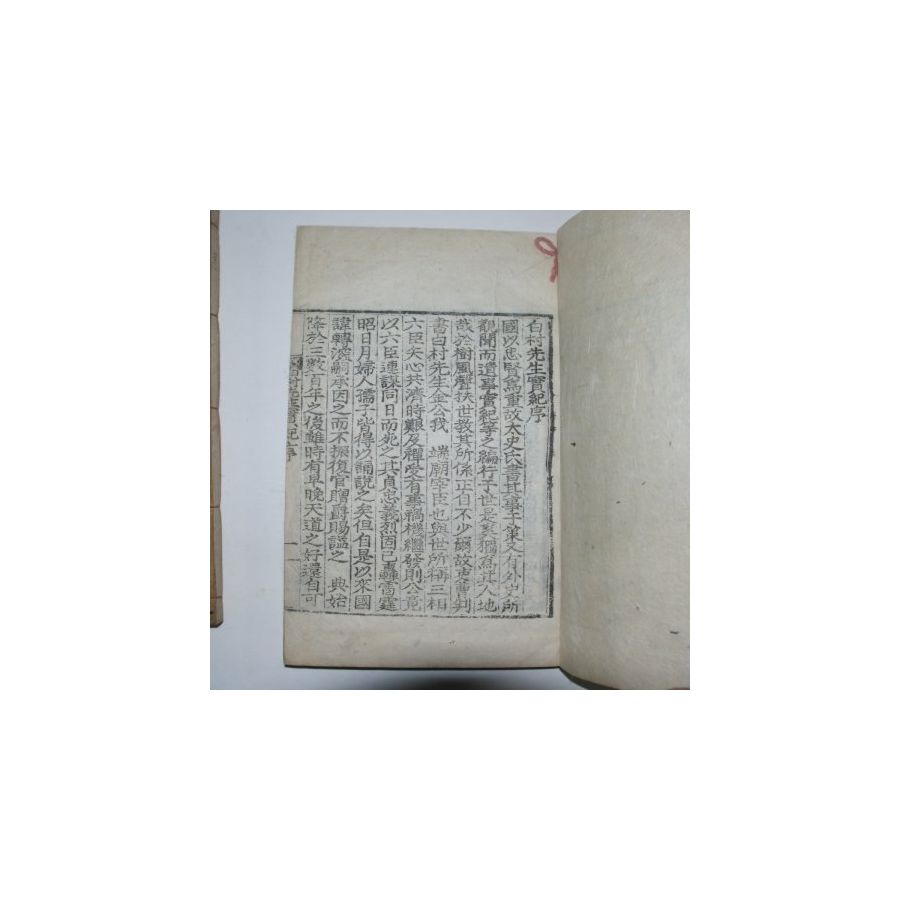 白村先生實紀序
國以忠賢爲重故太史氏書其事于策又有外史所
觀聞而遺事實紀等之編行于世是奚獨爲其人地
哉於樹風聲扶世教其所係正自不少爾故吏曹判
書白村先生金公我 端廟宰臣也與世所稱三相
六臣矢心共濟時艱及禪受有事禍機繼發則公竟
以六臣連謀同日而死之其貞忠義烈固已轟雷霆
昭日月婦人孺子皆得以誦說之矣但自是以來國
諱轉深嗣承因之而不振復官贈爵賜謚之 典始
降於三數百年之後雖時有早晚天道之好還自可
白村先生實紀序
一